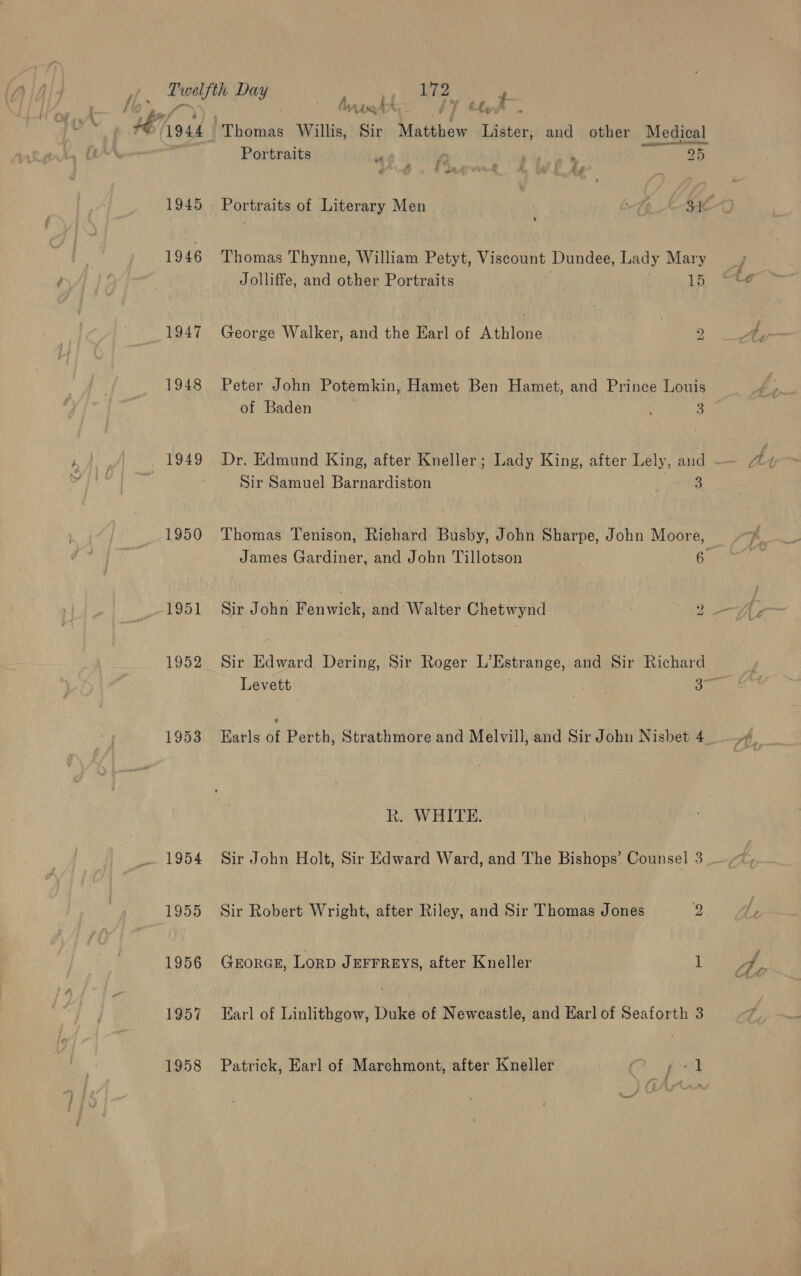 Twelfth Day 172
1944 Thomas Willis, Sir Matthew Lister, and other Medical
Portraits 25
1945 Portraits of Literary Men
1946 Thomas Thynne, William Petyt, Viscount Dundee, Lady Mary
Jolliffe, and other Portraits 15
1947 George Walker, and the Earl of Athlone 2
1948 Peter John Potemkin, Hamet Ben Hamet, and Prince Louis
of Baden 3
1949 Dr. Edmund King, after Kneller; Lady King, after Lely, and
Sir Samuel Barnardiston 3
1950 Thomas Tenison, Richard Busby, John Sharpe, John Moore,
James Gardiner, and John Tillotson 6
1951 Sir John Fenwick, and Walter Chetwynd 2
1952 Sir Edward Dering, Sir Roger L'Estrange, and Sir Richard
Levett 3
1953 Earls of Perth, Strathmore and Melvill, and Sir John Nisbet 4
R. WHITE.
1954 Sir John Holt, Sir Edward Ward, and The Bishops' Counsel 3
1955 Sir Robert Wright, after Riley, and Sir Thomas Jones 2
1956 GEORGE, LORD JEFFREYS, after Kneller 1
1957 Earl of Linlithgow, Duke of Newcastle, and Earl of Seaforth 3
1958 Patrick, Earl of Marchmont, after Kneller 1